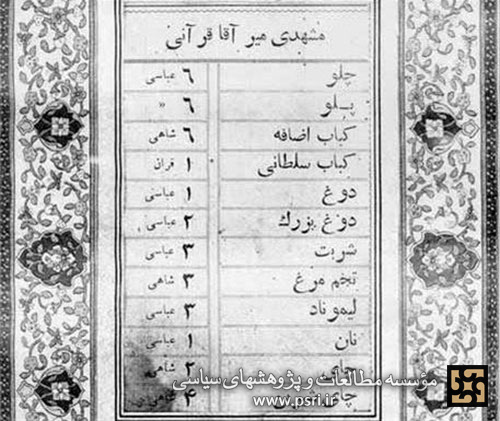 مشهدی میر آقا قرآنی
چلو ۶ عباسی
پلو ۶ »
کباب اضافه ۶ شاهی
کباب سلطانی ۱ قران
دوغ ۱ عباسی
دوغ بزرك ۲ عباسی
شربت ۳ عباسی
تخم مرغ ۳ شاهی
لیموناد ۳ عباسی
نان ۱ عباسی
چای ۲ شاهی
چای ۴
مؤسسه مطالعات و پژوهشهای سیاسی
www.psri.ir